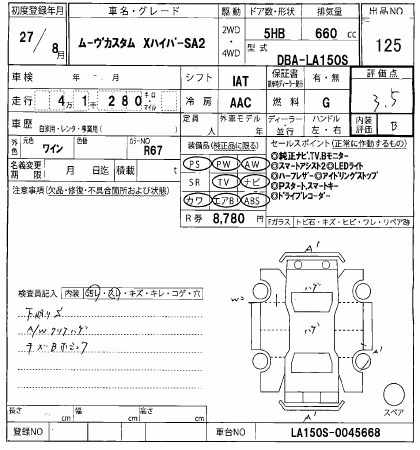 初度登録年月 車名・グレード 駆動 ドア数・形状 排気量 出品NO
27/8月 ムーヴカスタム XハイパーSA2 2WD・4WD 5HB 660 cc 125
型式 DBA-LA150S
車検 年 月 シフト IAT 保証書 有・無 評価点
走行 4万1千280キロ・マイル 冷房 AAC 燃料 G 3.5
車歴 自家用・レンタ・事業用( ) 定員 人 外車モデル 年 ディーラー・並行 ハンドル 左・右 内装評価 B
外色 元色 ワイン カラーNO R67
名義変更期限 月 日迄 積載 t
注意事項(欠品・修復・不具合箇所および状態)
装備品(純正品に限る)
PS PW AW
SR TV ナビ
カワ エアB ABS
R券 8,780 円
セールスポイント(正常に作動するもの)
◎純正ナビ,TV,Bモニター
◎スマートアシスト2◎LEDライト
◎ハーフレザー◎アイドリングストップ
◎Pスタート,スマートキー
◎ドライブレコーダー
Fガラス トビ石・キズ・ヒビ・ワレ・リペア跡
検査員記入 内装 ヨゴレ・スレ・キズ・キレ・コゲ・穴
下廻りS
A/Wクリアハゲ
A'
W2
ハゲ
ハゲ
A'
A'
スペア
長さ cm 幅 cm 高さ cm
登録NO 車台NO LA150S-0045668